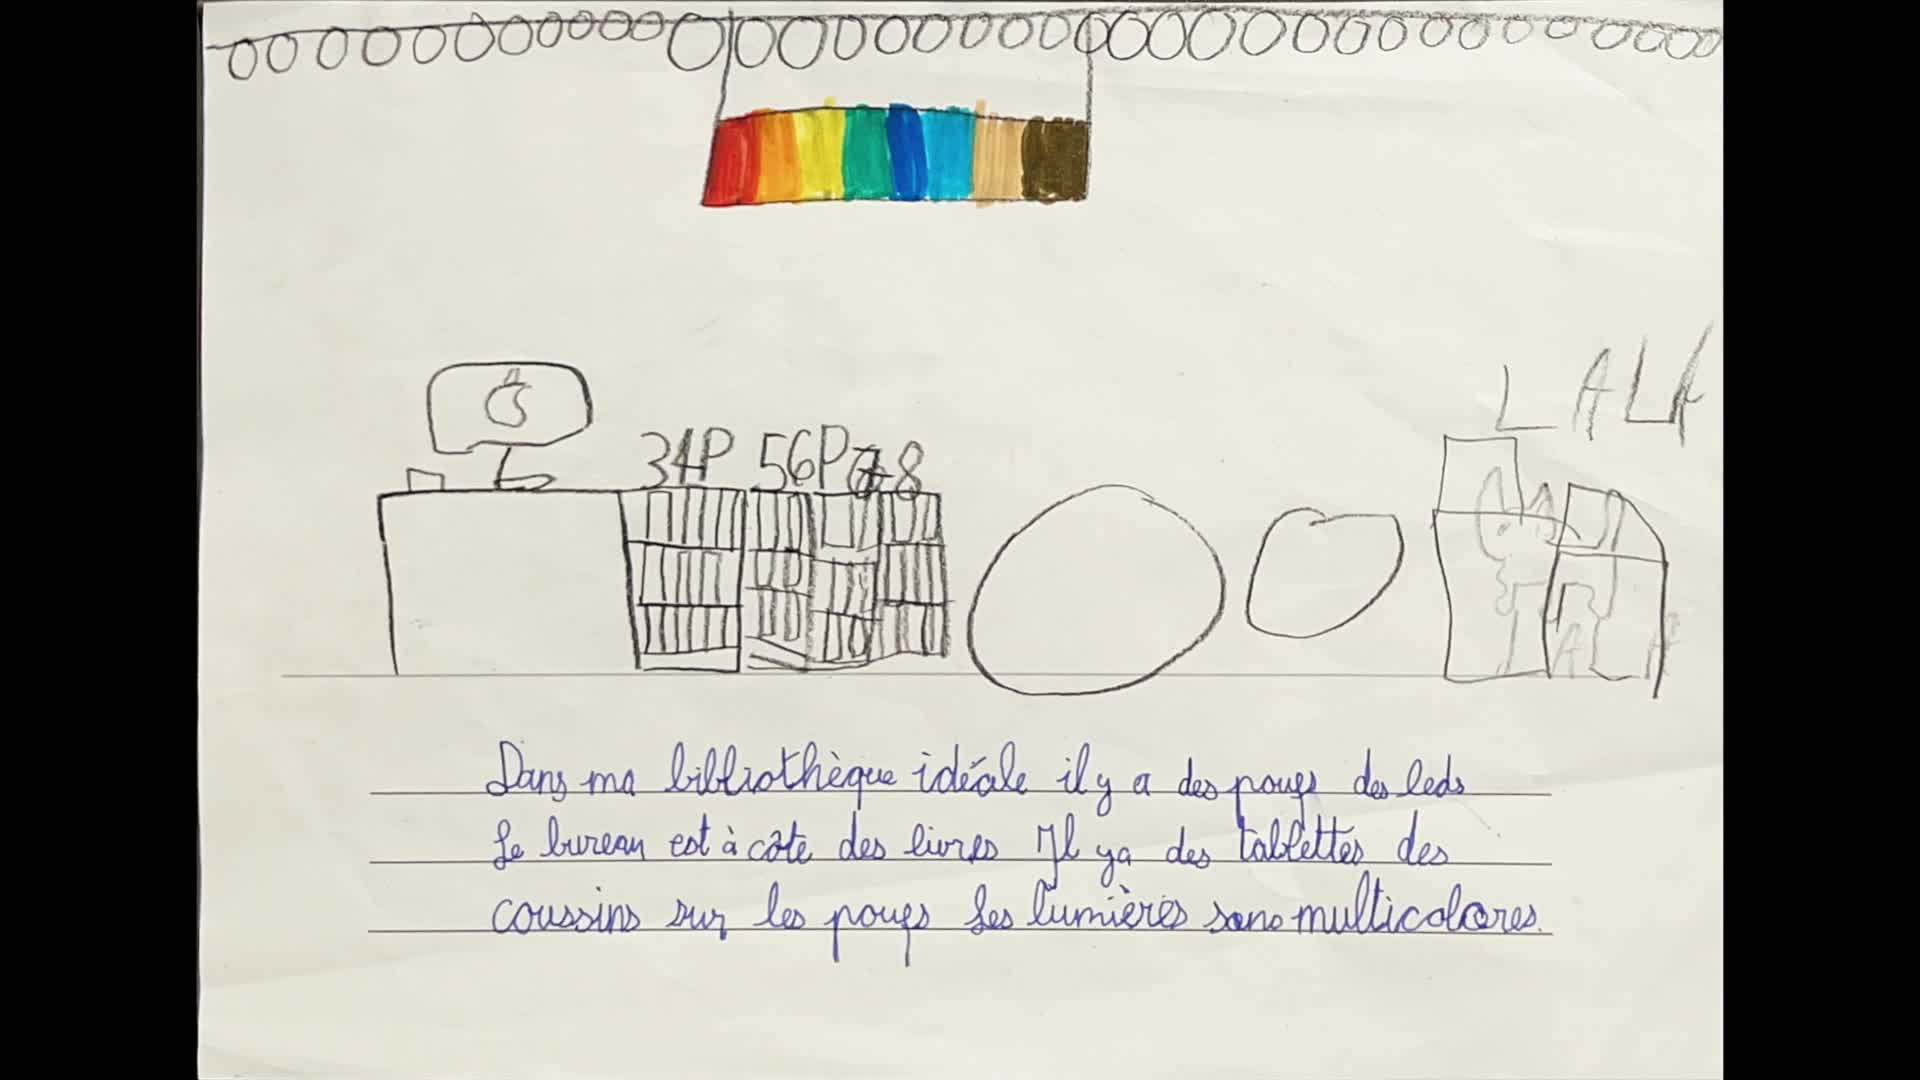 LALA
34P 56P 78
Dans ma bibliothèque idéale il y a des poufs des leds
Le bureau est à côté des livres Il y a des tablettes des
coussins sur les poufs Les lumières sons multicolores.